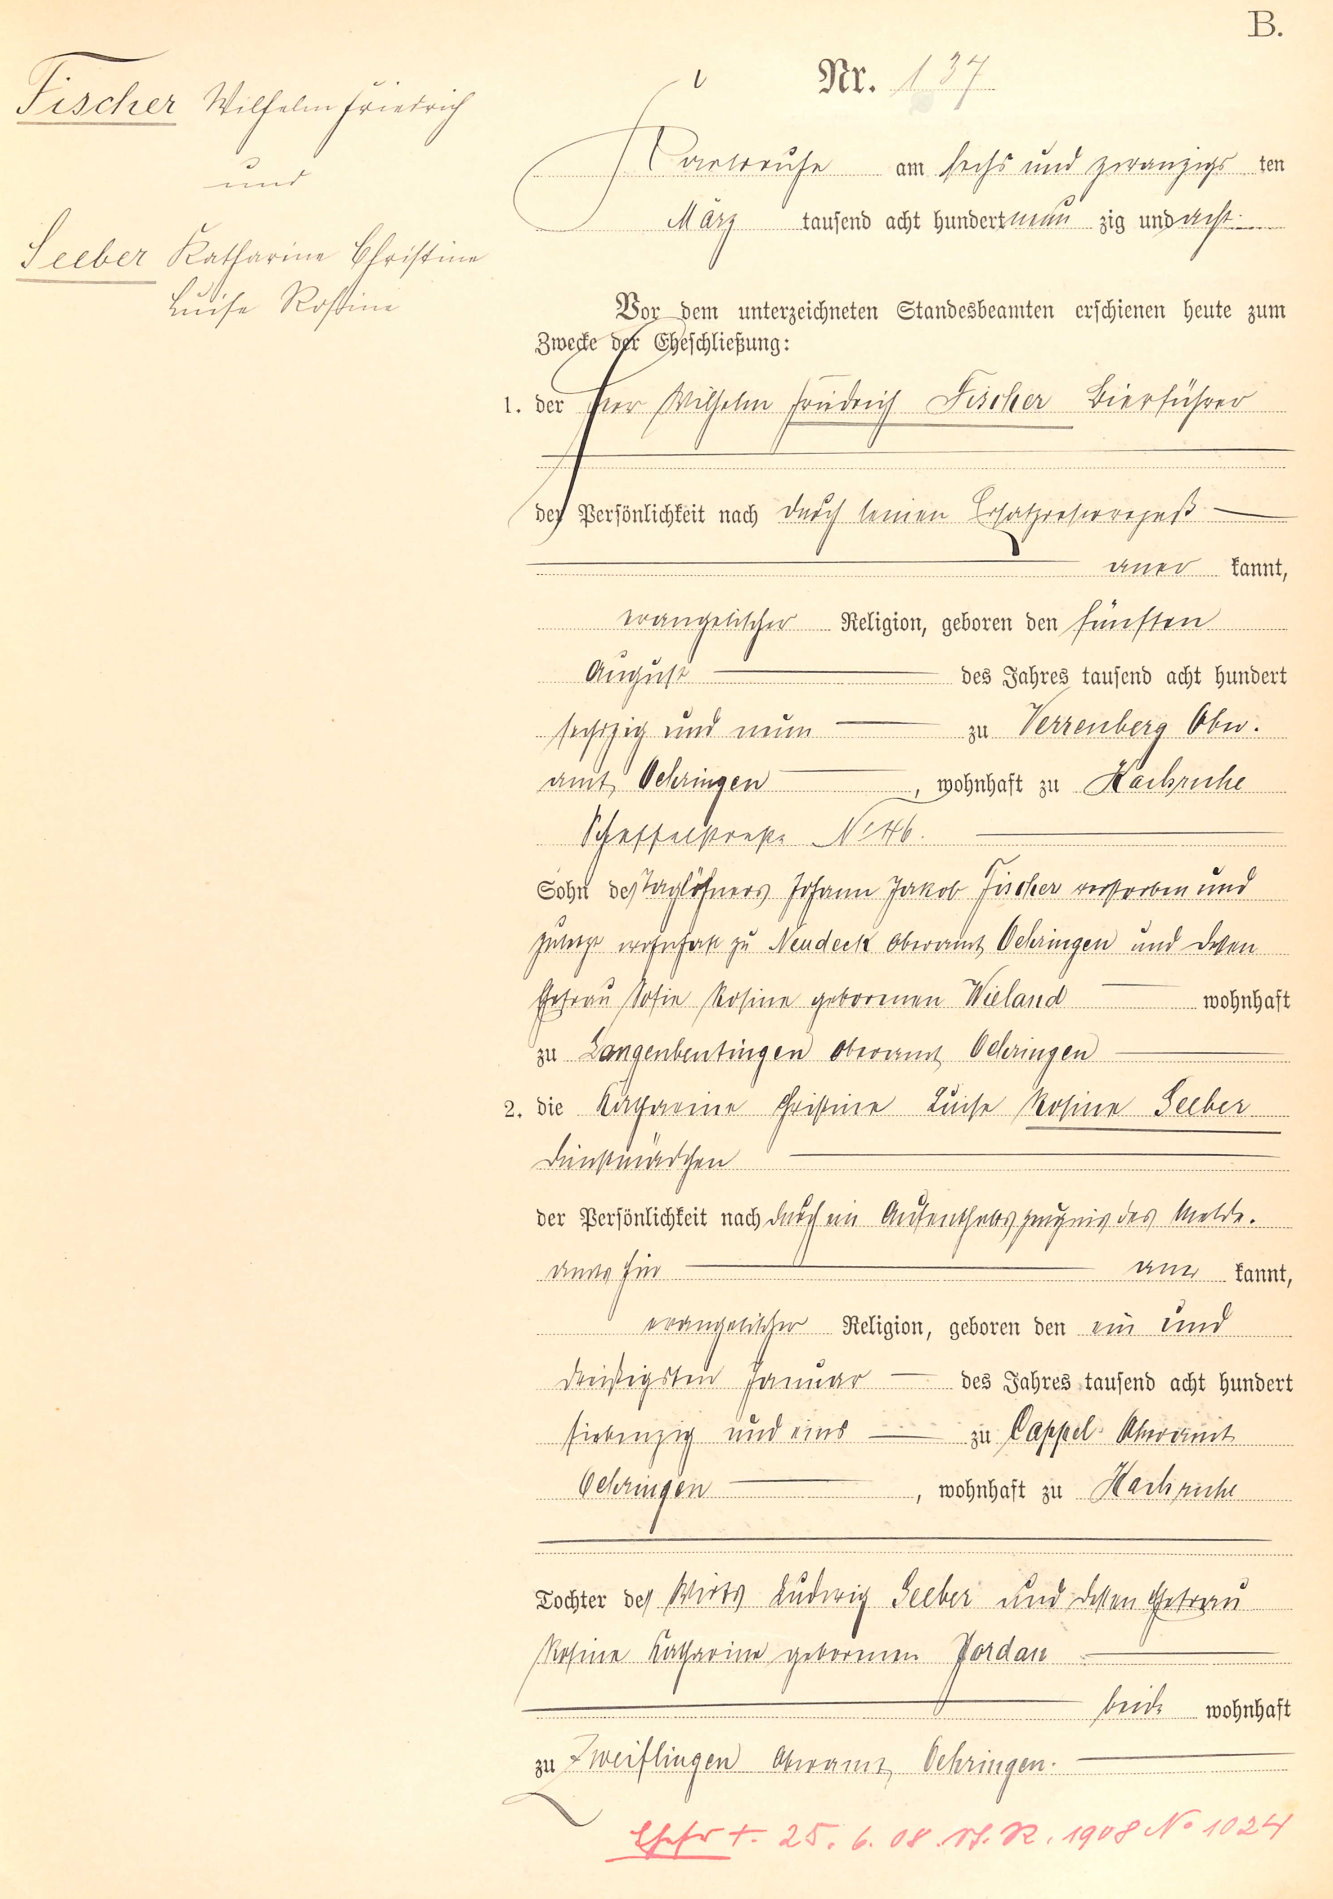 B.
Nr. 137
Fischer Wilhelm Friedrich
und
Seeber Katharine Christine
Luise Rosine
Karlsruhe am sechs und zwanzigs ten
März tausend acht hundert neun zig und acht
Vor dem unterzeichneten Standesbeamten erschienen heute zum
Zwecke der Eheschließung:
1. der Wilhelm Friedrich Fischer Bierführer
der Persönlichkeit nach durch seinen Ersatzreservepaß
aner kannt,
evangelischer Religion, geboren den fünften
August des Jahres tausend acht hundert
sechszig und neun zu Verrenberg Ober-
amt Oehringen, wohnhaft zu Karlsruhe
Scheffelstraße No 46.
Sohn des Taglöhners Johann Jakob Fischer verstorben und
zuletzt wohnhaft zu Neudeck Oberamt Oehringen und dessen
Ehefrau Sofie Rosine geborenen Wieland wohnhaft
zu Langenbeutingen Oberamt Oehringen
2. die Katharine Christine Luise Rosine Seeber
Dienstmädchen
der Persönlichkeit nach durch ein Aufenthaltszeugnis des Melde-
amts hier aner kannt,
evangelischer Religion, geboren den ein und
dreißigsten Januar des Jahres tausend acht hundert
siebenzig und eins zu Cappel Oberamt
Oehringen, wohnhaft zu Karlsruhe
Tochter des Wirts Ludwig Seeber und dessen Ehefrau
Rosine Katharine geborenen Jordan
beide wohnhaft
zu Zweiflingen Oberamt Oehringen.
Ehefr †. 25. 6. 08. St. R. 1908 No 1024